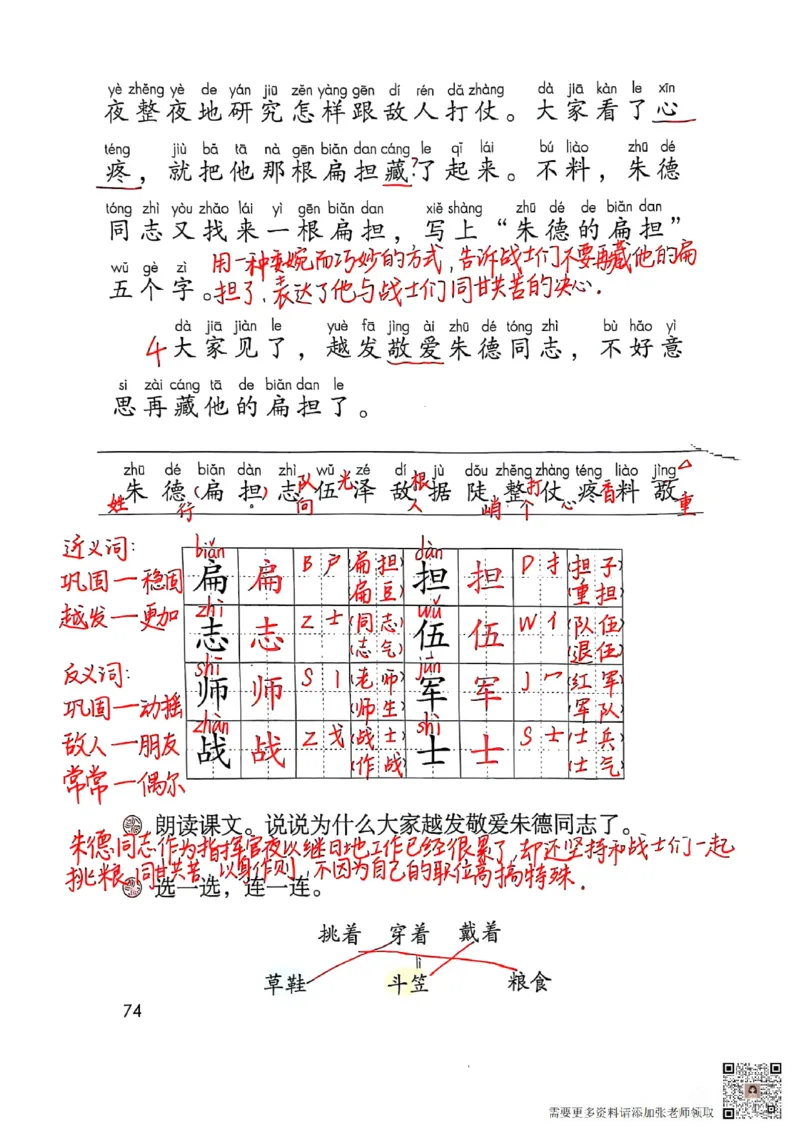 yè zhěng yè de yán jiū zěn yàng gēn dí rén dǎ zhàng dà jiā kàn le xīn
夜整夜地研究怎样跟敌人打仗。大家看了心
téng jiù bǎ tā nà gēn biǎn dan cáng le qǐ lái bú liào zhū dé
疼，就把他那根扁担藏?了起来。不料，朱德
tóng zhì yòu zhǎo lái yì gēn biǎn dan xiě shàng zhū dé de biǎn dan
同志又找来一根扁担，写上“朱德的扁担”
用一种委婉而巧妙的方式,告诉战士们不要再藏他的扁
wǔ gè zì
五个字。担了,表达了他与战士们同甘共苦的决心.
dà jiā jiàn le yuè fā jìng ài zhū dé tóng zhì bù hǎo yì
4大家见了，越发敬爱朱德同志，不好意
si zài cáng tā de biǎn dan le
思再藏他的扁担了。
zhū dé biǎn dàn zhì wǔ zé dí jù dǒu zhěng zhàng téng liào jìng
朱德(扁担)志队伍光泽敌根据陡整打仗疼香料敬
姓 行 向 人 峭 个 心 重
近义词:
巩固—稳固
越发—更加
反义词:
巩固—动摇
敌人—朋友
常常—偶尔
biǎn dàn
扁 扁 B 户 (扁担) 担 担 D 扌 (担子)
(扁豆) (重担)
zhì wǔ
志 志 Z 士 (同志) 伍 伍 W 亻 (队伍)
(志气) (退伍)
shī jūn
师 师 S 丨 (老师) 军 军 J 冖 (红军)
(师生) (军队)
zhàn shì
战 战 Z 戈 (战士) 士 士 S 士 (士兵)
(作战) (士气)
朗读课文。说说为什么大家越发敬爱朱德同志了。
朱德同志作为指挥官夜以继日地工作已经很累了,却还坚持和战士们一起
挑粮,同甘共苦,以身作则,不因为自己的职位高搞特殊.
选一选，连一连。
挑着 穿着 戴着
lì
草鞋 斗笠 粮食
74
需要更多资料请添加张老师领取